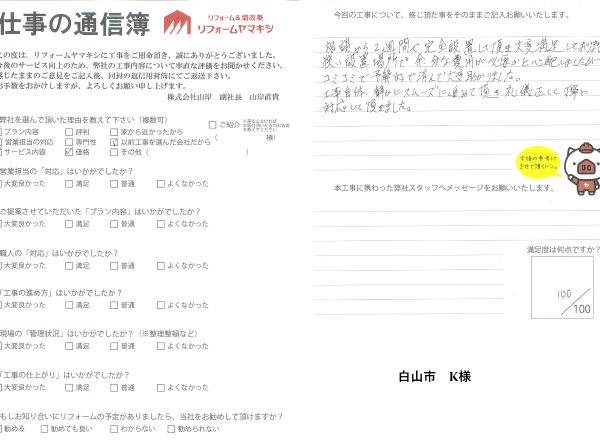 仕事の通信簿
リフォーム&増改築
リフォームヤマキシ
この度は、リフォームヤマキシに工事をご用命頂き、誠にありがとうございました。
今後のサービス向上のため、弊社の工事内容について率直な評価をお聞かせください。
感じたままのご意見をご記入後、同封の返信用封筒にてご返送下さい。
お手数をおかけしますが、よろしくお願い申し上げます。
株式会社山岸 副社長 山岸直貴
弊社を選んで頂いた理由を教えて下さい(複数可)
プラン内容 評判 家から近かったから
営業担当の対応 専門性 以前工事を選んだ会社だから
サービス内容 価格 その他( )
ご紹介
( 様)
営業担当の「対応」はいかがでしたか?
大変良かった 満足 普通 よくなかった
ご提案させていただいた「プラン内容」はいかがでしたか?
大変良かった 満足 普通 よくなかった
職人の「対応」はいかがでしたか?
大変良かった 満足 普通 よくなかった
「工事の進め方」はいかがでしたか?
大変良かった 満足 普通 よくなかった
現場の「管理状況」はいかがでしたか?(※整理整頓など)
大変良かった 満足 普通 よくなかった
「工事の仕上がり」はいかがでしたか?
大変良かった 満足 普通 よくなかった
もしお知り合いにリフォームの予定がありましたら、当社をお勧めして頂けますか?
勧める 勧めても良い わからない 勧められない
今回の工事について、感じた事柄をそのままご記入お願いいたします。
相談から2週間で完全設置して頂き大変満足しており
狭い設置場所で余分な費用が必要かと心配しましたが
コミコミで予算内で済んで大変助かりました。
工事自体、静かにスムーズに進めて頂き礼儀正しく丁寧に
対応して頂けました。
今後の参考に
させて頂くトン。
本工事に携わった弊社スタッフへメッセージをお願いいたします。
満足度は何点ですか?
100
/100
白山市 K様